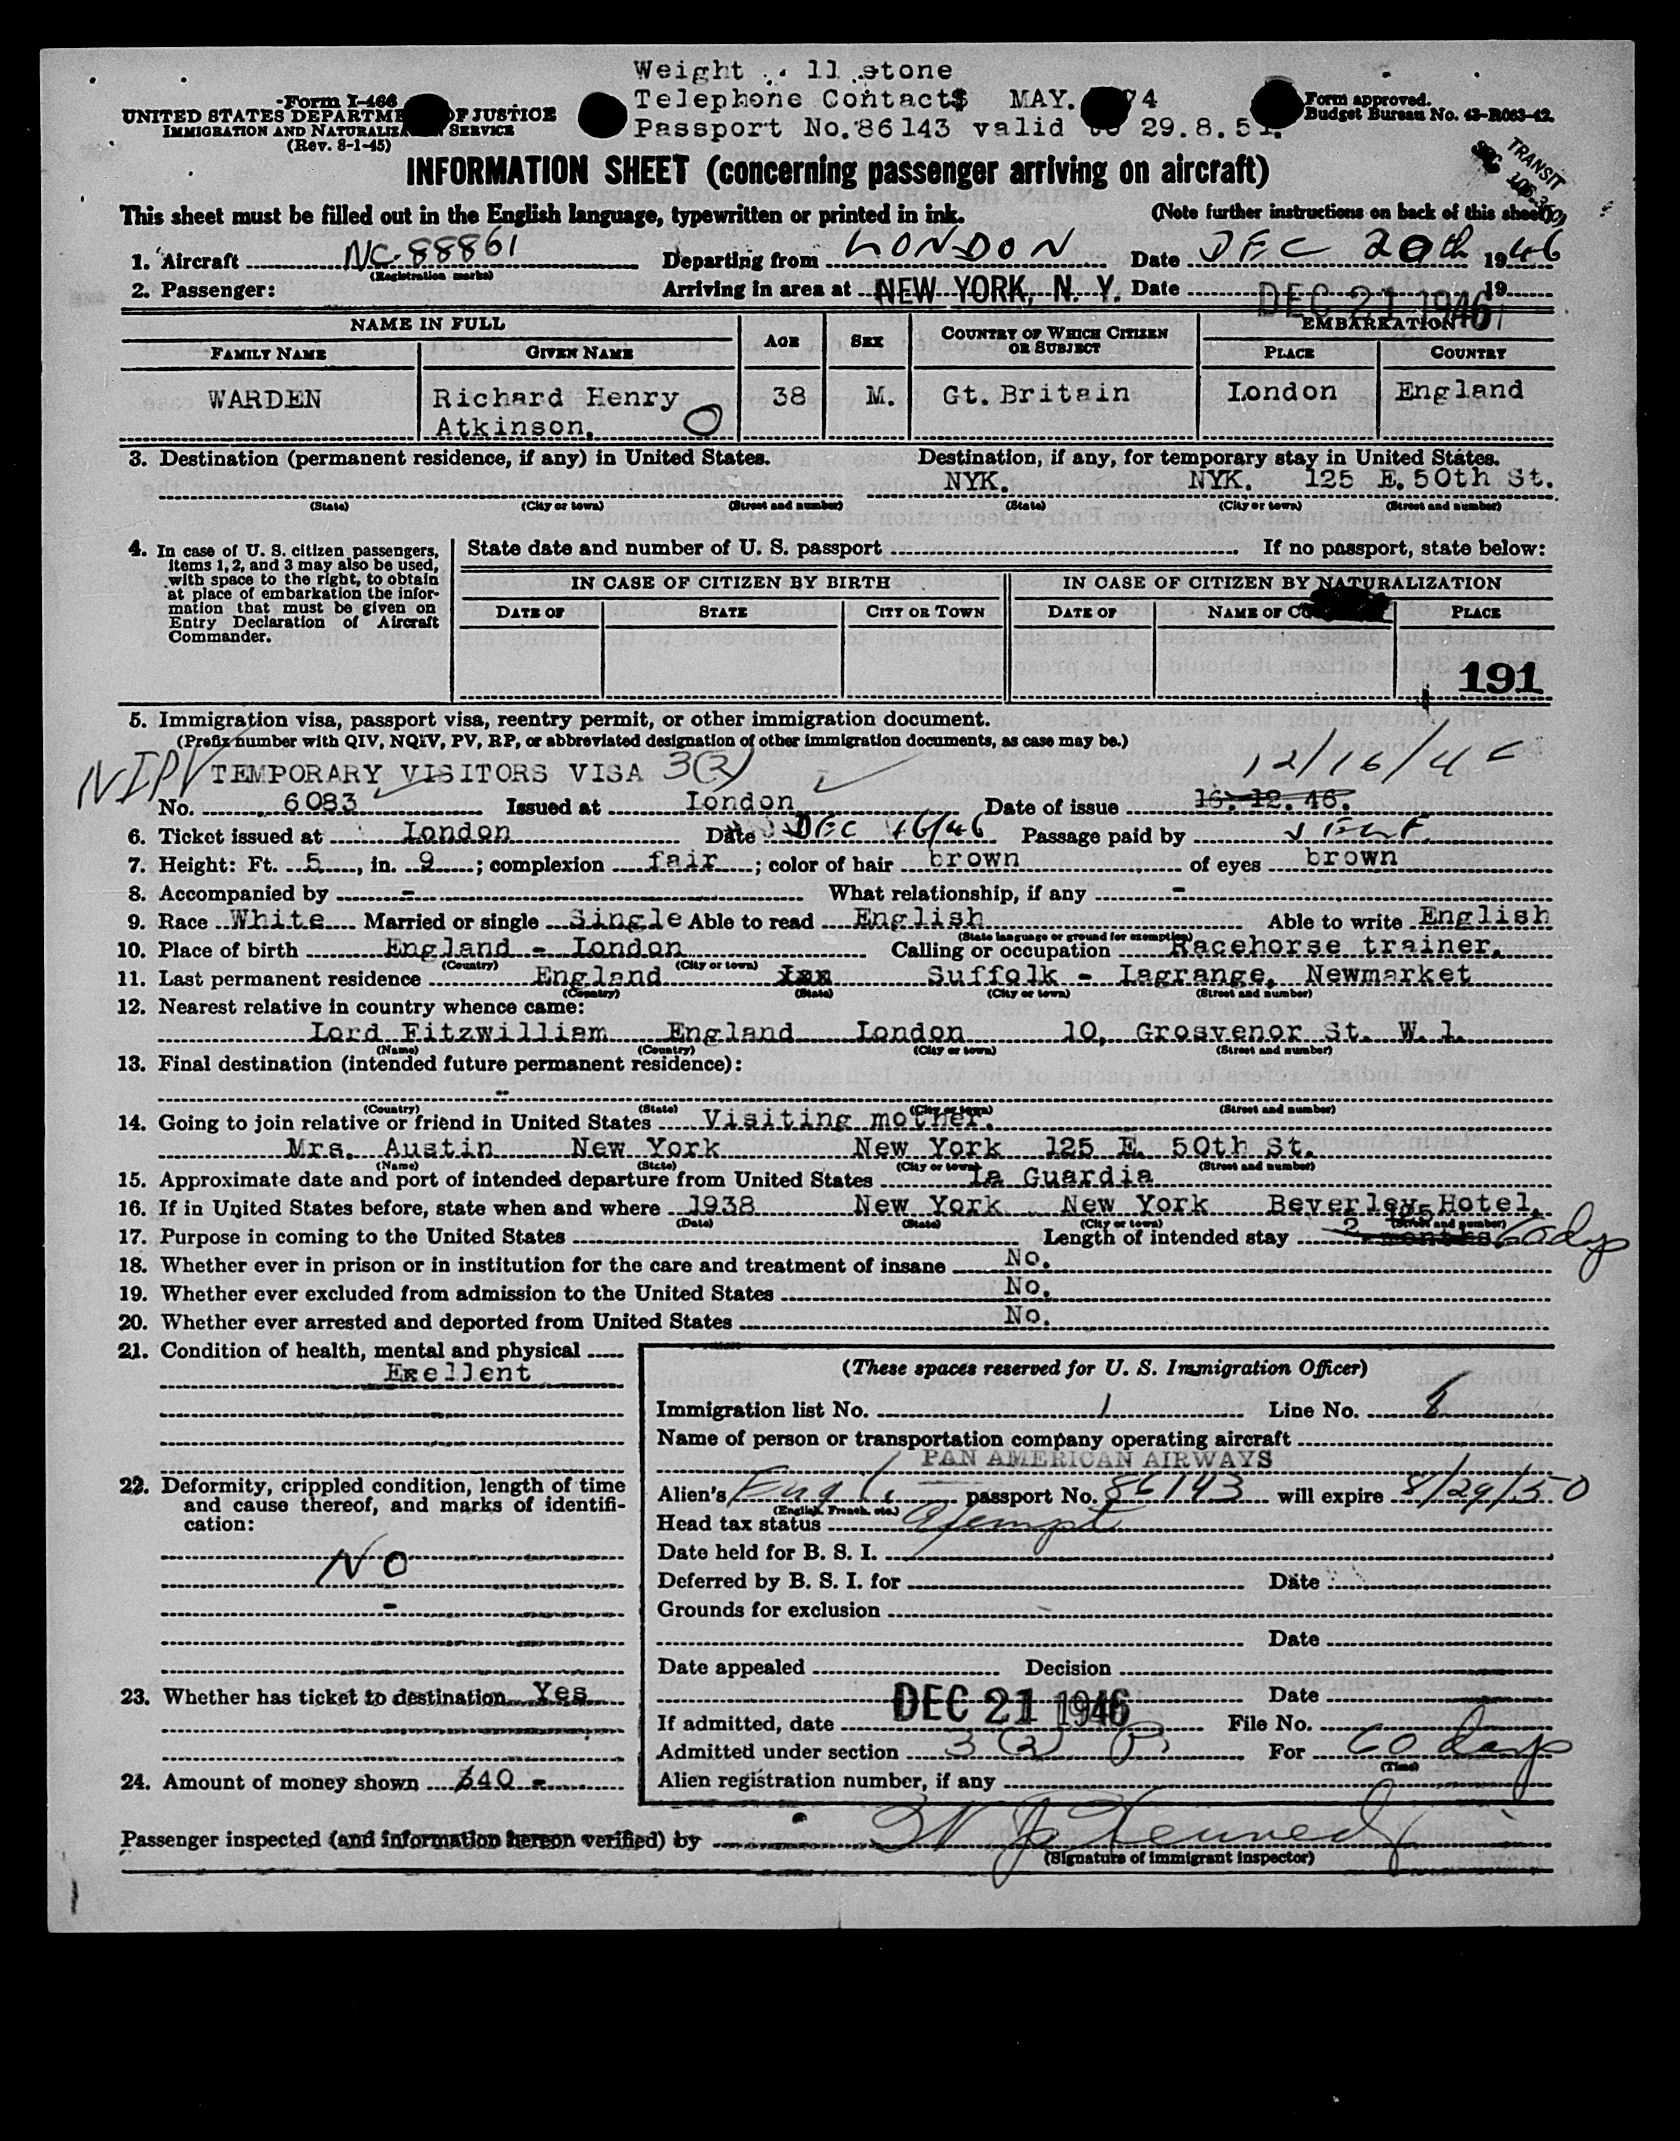 Weight .. 11 stone
Form I-466
UNITED STATES DEPARTME F JUSTICE
IMMIGRATION AND NATURALIZA SERVICE
(Rev. 8-1-45)
Telephone Contact$ MAY. 74
Passport No. 86143 valid 29.8.51.
Form approved.
Budget Bureau No. 43-R063-42.
TRANSIT
SEC
INFORMATION SHEET (concerning passenger arriving on aircraft)
This sheet must be filled out in the English language, typewritten or printed in ink. (Note further instructions on back of this sheet)
1. Aircraft NC-88861 Departing from LONDON Date DEC 20th 1946
(Registration marks)
2. Passenger: Arriving in area at NEW YORK, N. Y. Date DEC 21 1946 19
NAME IN FULL AGE SEX COUNTRY OF WHICH CITIZEN OR SUBJECT EMBARKATION
FAMILY NAME GIVEN NAME PLACE COUNTRY
WARDEN Richard Henry 38 M. Gt. Britain London England
Atkinson.
3. Destination (permanent residence, if any) in United States. Destination, if any, for temporary stay in United States.
NYK. NYK. 125 E. 50th St.
(State) (City or town) (Street and number) (State) (City or town) (Street and number)
4. In case of U. S. citizen passengers,
items 1, 2, and 3 may also be used,
with space to the right, to obtain
at place of embarkation the infor-
mation that must be given on
Entry Declaration of Aircraft
Commander.
State date and number of U. S. passport If no passport, state below:
IN CASE OF CITIZEN BY BIRTH IN CASE OF CITIZEN BY NATURALIZATION
DATE OF STATE CITY OR TOWN DATE OF NAME OF CO PLACE
191
5. Immigration visa, passport visa, reentry permit, or other immigration document.
(Prefix number with QIV, NQIV, PV, RP, or abbreviated designation of other immigration documents, as case may be.)
NIPV TEMPORARY VISITORS VISA 3(2) 12/16/46
No. 6083 Issued at London Date of issue 16. 12. 46.
6. Ticket issued at London Date DEC 16/46 Passage paid by
7. Height: Ft. 5, in. 9; complexion fair; color of hair brown of eyes brown
8. Accompanied by - What relationship, if any -
9. Race White Married or single Single Able to read English Able to write English
(State language or ground for exemption)
10. Place of birth England - London Calling or occupation Racehorse trainer.
(Country) (City or town)
11. Last permanent residence England Suffolk - Lagrange, Newmarket
(Country) (State) (City or town) (Street and number)
12. Nearest relative in country whence came:
Lord Fitzwilliam England London 10, Grosvenor St. W. 1.
(Name) (Country) (City or town) (Street and number)
13. Final destination (intended future permanent residence):
-
(Country) (State) (City or town) (Street and number)
14. Going to join relative or friend in United States Visiting mother.
Mrs. Austin New York New York 125 E. 50th St.
(Name) (State) (City or town) (Street and number)
15. Approximate date and port of intended departure from United States La Guardia
16. If in United States before, state when and where 1938 New York New York Beverley Hotel,
(Date) (State) (City or town) (Street and number)
125
17. Purpose in coming to the United States Length of intended stay 2 months. 60 dys
18. Whether ever in prison or in institution for the care and treatment of insane No.
19. Whether ever excluded from admission to the United States No.
20. Whether ever arrested and deported from United States No.
21. Condition of health, mental and physical
Exellent
22. Deformity, crippled condition, length of time
and cause thereof, and marks of identifi-
cation:
NO
-
23. Whether has ticket to destination Yes
24. Amount of money shown $40 -
(These spaces reserved for U. S. Immigration Officer)
Immigration list No. 1 Line No. 8
Name of person or transportation company operating aircraft
PAN AMERICAN AIRWAYS
Alien's Engl passport No. 86143 will expire 8/29/50
(English, French, etc.)
Head tax status exempt
Date held for B. S. I.
Deferred by B. S. I. for Date
Grounds for exclusion
Date
Date appealed Decision
Date
If admitted, date DEC 21 1946 File No.
Admitted under section 3 (2) For 60 days
(Time)
Alien registration number, if any
Passenger inspected (and information hereon verified) by W J Kennedy
(Signature of immigrant inspector)